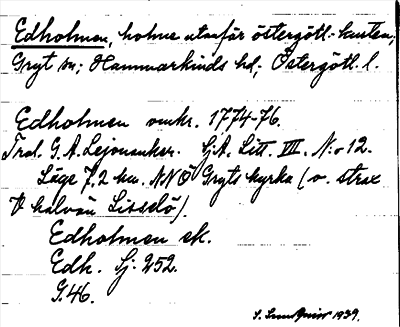 Edholmen, holme utanför östergötl.-kusten,
Gryt sn; Hammarkinds hd; Östergötl. l.
Edholmen omkr. 1774-76.
Trol. G. A. Lejonanker. Sj.A. Litt. VII. N:o 12.
Läge 7,2 km. NNÖ Gryts kyrka (o. strax
V halvön Lisselö).
Edholmen sk.
Edh. Sj. 252.
G.46.
S. 1939.